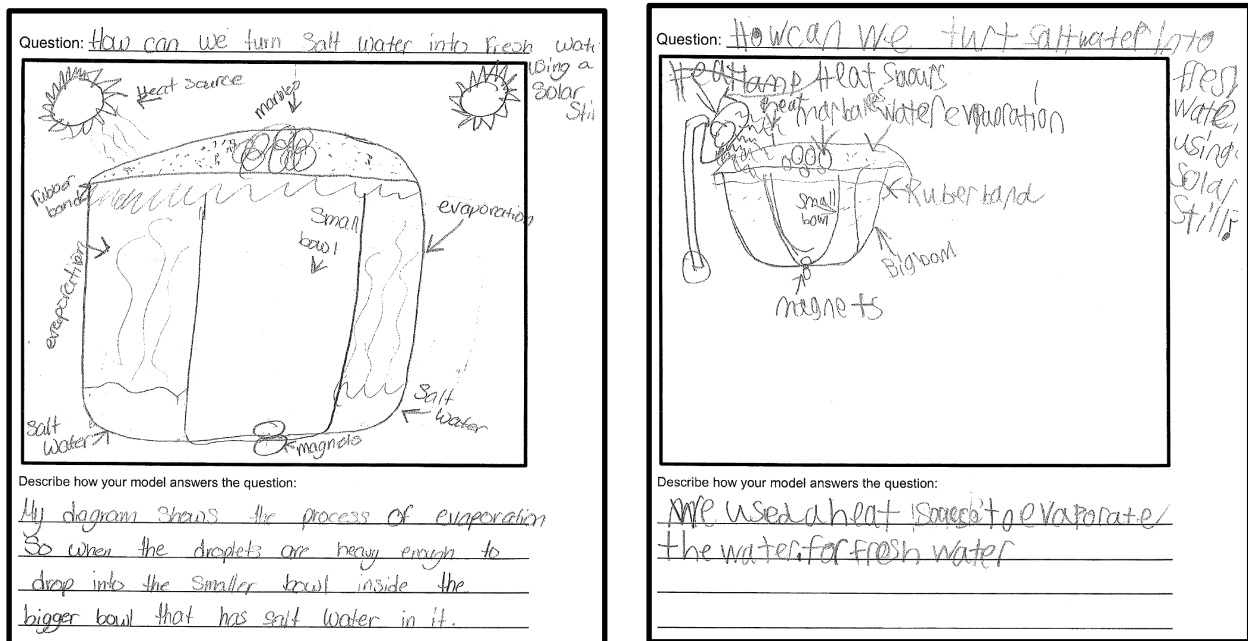 Question: How can we turn Salt Water into Fresh wat
using a
Solar
Stil
Heat Source
marbles
rubber
band
Small
bowl
evaporation
evaporation
Salt
Water
magnets
Salt
Water
Describe how your model answers the question:
My diagram shows the process of evaporation
So when the droplets are heavy enough to
drop into the smaller bowl inside the
bigger bowl that has salt water in it.
Question: How can we turt saltwater into
fresh
water
using
Solar
Still?
Heat lamp Heat Souurs
heat marbales water evaporation
Small
bowl
Ruberband
Bigbowl
magnets
Describe how your model answers the question:
We used a heat to evaporate
the water. for fresh water